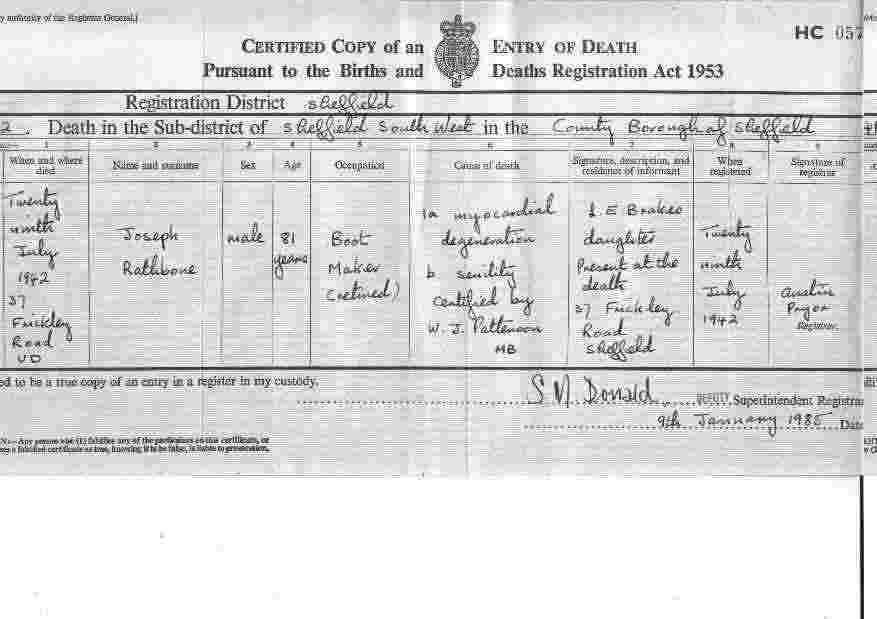 y authority of the Registrar General.)
HC 057
CERTIFIED COPY of an ENTRY OF DEATH
Pursuant to the Births and Deaths Registration Act 1953
Registration District Sheffield
2. Death in the Sub-district of Sheffield South West in the County Borough of Sheffield
1 2 3 4 5 6 7 8 9
When and where died
Name and surname
Sex
Age
Occupation
Cause of death
Signature, description, and residence of informant
When registered
Signature of registrar
Twenty
ninth
July
1942
37
Frickley
Road
UD
Joseph
Rathbone
male
81
years
Boot
Maker
(retired)
1a myocardial
degeneration
b senility
Certified by
W. J. Pattenson
MB
L E Brakes
daughter
Present at the
death
37 Frickley
Road
Sheffield
Twenty
ninth
July
1942
Austin
Pryor
Registrar.
ed to be a true copy of an entry in a register in my custody.
S M Donald DEPUTY Superintendent Registrar
9th January 1985 Date
N:—Any person who (1) falsifies any of the particulars on this certificate, or
a falsified certificate as true, knowing it to be false, is liable to prosecution.